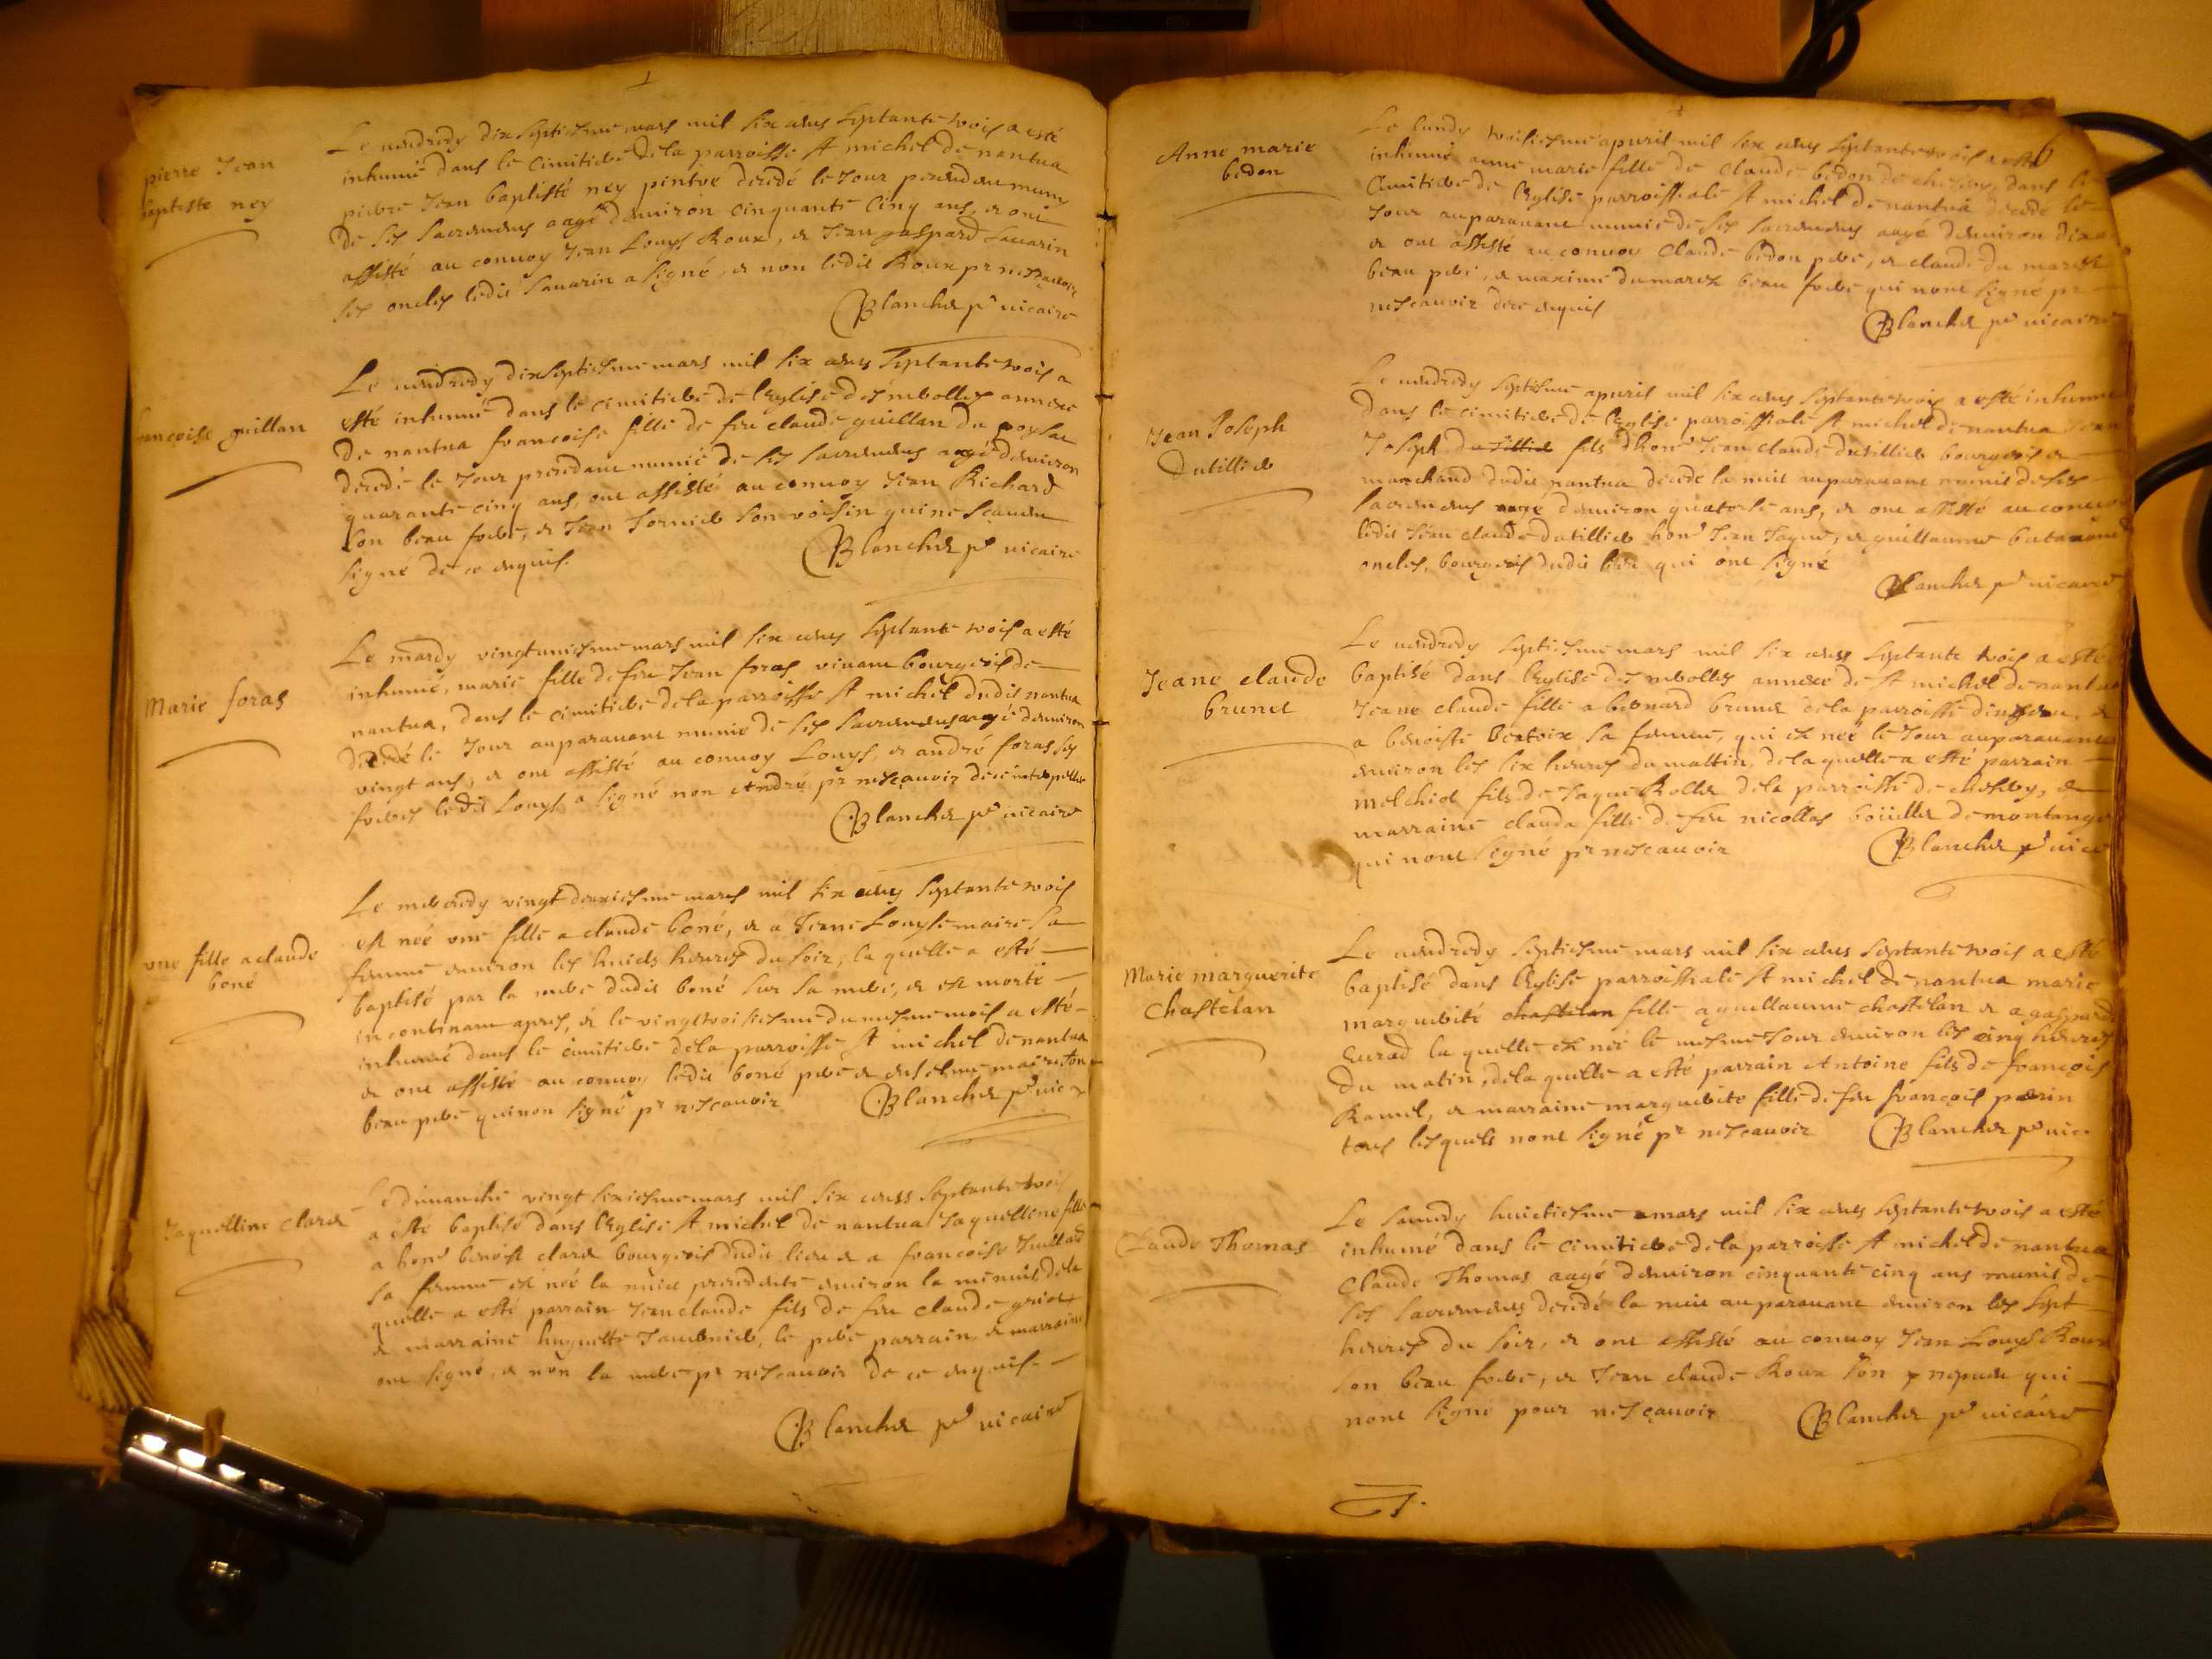 pierre Jean
baptiste ney
Le vendredy dix septiesme mars mil six cens septante trois a esté
inhumé dans le cimitiere de la parroisse St michel de nantua
pierre Jean baptiste ney pintre decedé le Jour precedent muny
de ses sacremens aagé d'environ cinquante cinq ans, et ont
assisté au convoy Jean Louys Roux, et Jean gaspard Savarin
ses oncles ledit Savarin a signé, et non ledit Roux pr nesçavoir
Blanchet pr vicaire
francoise guillan
Le vendredy dixseptiesme mars mil six cens septante trois a
esté inhumé dans le cimitiere de l'Eglise des neolles annexe
de nantua francoise fille de feu claude guillan du poysat
decedé le Jour precedent munie de ses sacremens aagé d'environ
quarante cinq ans, ont assisté au convoy Jean Richard
son beau frere, et Jean Tornier son voisin qui ne sçavent
signé de ce enquis.
Blanchet pr vicaire
Marie foras
Le mardy vingtuniesme mars mil six cens septante trois a esté
inhumé, marie fille de feu Jean foras vivant bourgeois de
nantua, dans le cimitiere de la parroisse St michel dudit nantua
decedé le Jour auparavant munie de ses sacremens aagé d'environ
vingt ans, et ont assisté au convoy Louys, et andré foras ses
freres ledit Louys a signé non André pr nesçavoir
Blanchet pr vicaire
une fille a claude
boné
Le mercredy vingt deuxiesme mars mil six cens septante trois
est née une fille a claude boné, et a Jeane Louyse maire sa
femme environ les huicts heures du soir, la quelle a esté
baptisé par la mere dudit boné sur sa mere, et est morte
incontinant apres, et le vingt troisiesme du mesme mois a esté
inhumé dans le cimitiere de la parroisse St michel de nantua
et ont assisté au convoy ledit boné pere et anselme maire son
beau pere qui non signé pr nesçavoir
Blanchet pr vice
Jaquelline claret
Le dimanche vingt sixiesme mars mil six cens septante trois
a esté baptisé dans l'Eglise St michel de nantua Jaquelline fille
a honr benoist claret bourgeois dudit lieu et a francoise Juillard
sa femme est née la nuict precedente environ la minuit, de la
quelle a esté parrain Jean claude fils de feu claude griot
et marraine huguette Tavernier, le pere parrain, et marraine
ont signé, et non la mere pr nesçavoir de ce enquis.
Blanchet pr vicaire
6
Anne marie
bedon
Le lundy troisiesme apvril mil six cens septante trois a esté
inhumé anne marie fille de claude bedon de chesery, dans le
cimitiere de l'Eglise parroissiale St michel de nantua decedé le
Jour auparavant munie de ses sacremens aagé d'environ dix
et ont assisté au convoy claude bedon pere, et claude du marest
beau pere, et maxime dumarest beau frere qui nont signé pr
nesçavoir dece enquis
Blanchet pr vicaire
Jean Joseph
Dutillier
Le vendredy septiesme apvril mil six cens septante trois a esté inhumé
dans le cimitiere de l'Eglise parroissiale St michel de nantua Jean
Joseph dutillier fils d'honr Jean claude dutillier bourgeois et
marchand dudit nantua decedé la nuit auparavant munis de ses
sacremens aagé d'environ quatorze ans, et ont assisté au convoy
ledit Jean claude dutillier honr Jean Jagus, et guillaume
oncles, bourgeois dudit lieu qui ont signé
Blanchet pr vicaire
Jeane claude
brunet
Le vendredy septiesme mars mil six cens septante trois a esté
baptisé dans l'Eglise des neolles annexe de St michel de nantua
Jeane claude fille a bernard brunet de la parroisse, et
a benoiste Bertoix sa femme, qui est neé le Jour auparavant
environ les six heures du mattin, de la quelle a esté parrain
melchiol fils de Jaque Rollet de la parroisse de chesery, et
marraine clauda fille de feu nicollas boüillet de montange
qui nont signé pr nesçavoir
Blanchet pr vice
Marie marguerite
Chastelan
Le vendredy septiesme mars mil six cens septante trois a esté
baptisé dans l'Eglise parroissiale St michel de nantua marie
marguerite chastelan fille a guillaume chastelan et a gasparde
Eurad la quelle est née le mesme Jour environ les cinq heures
du matin, de la quelle a esté parrain Antoine fils de françois
Ramel, et marraine marguerite fille de feu françois perrin
tous lesquels nont signé pr nesçavoir
Blanchet pr vic.
Claude Thomas
Le samedy huictiesme mars mil six cens septante trois a esté
inhumé dans le cimitiere de la parroisse St michel de nantua
Claude Thomas aagé d'environ cinquante cinq ans munis de
ses sacremens decedé la nuit auparavant environ les sept
heures du soir, et ont assisté au convoy Jean Louys Roux
son beau frere, et Jean claude Roux son nepveu qui
nont signé pour nesçavoir
Blanchet pr vicaire